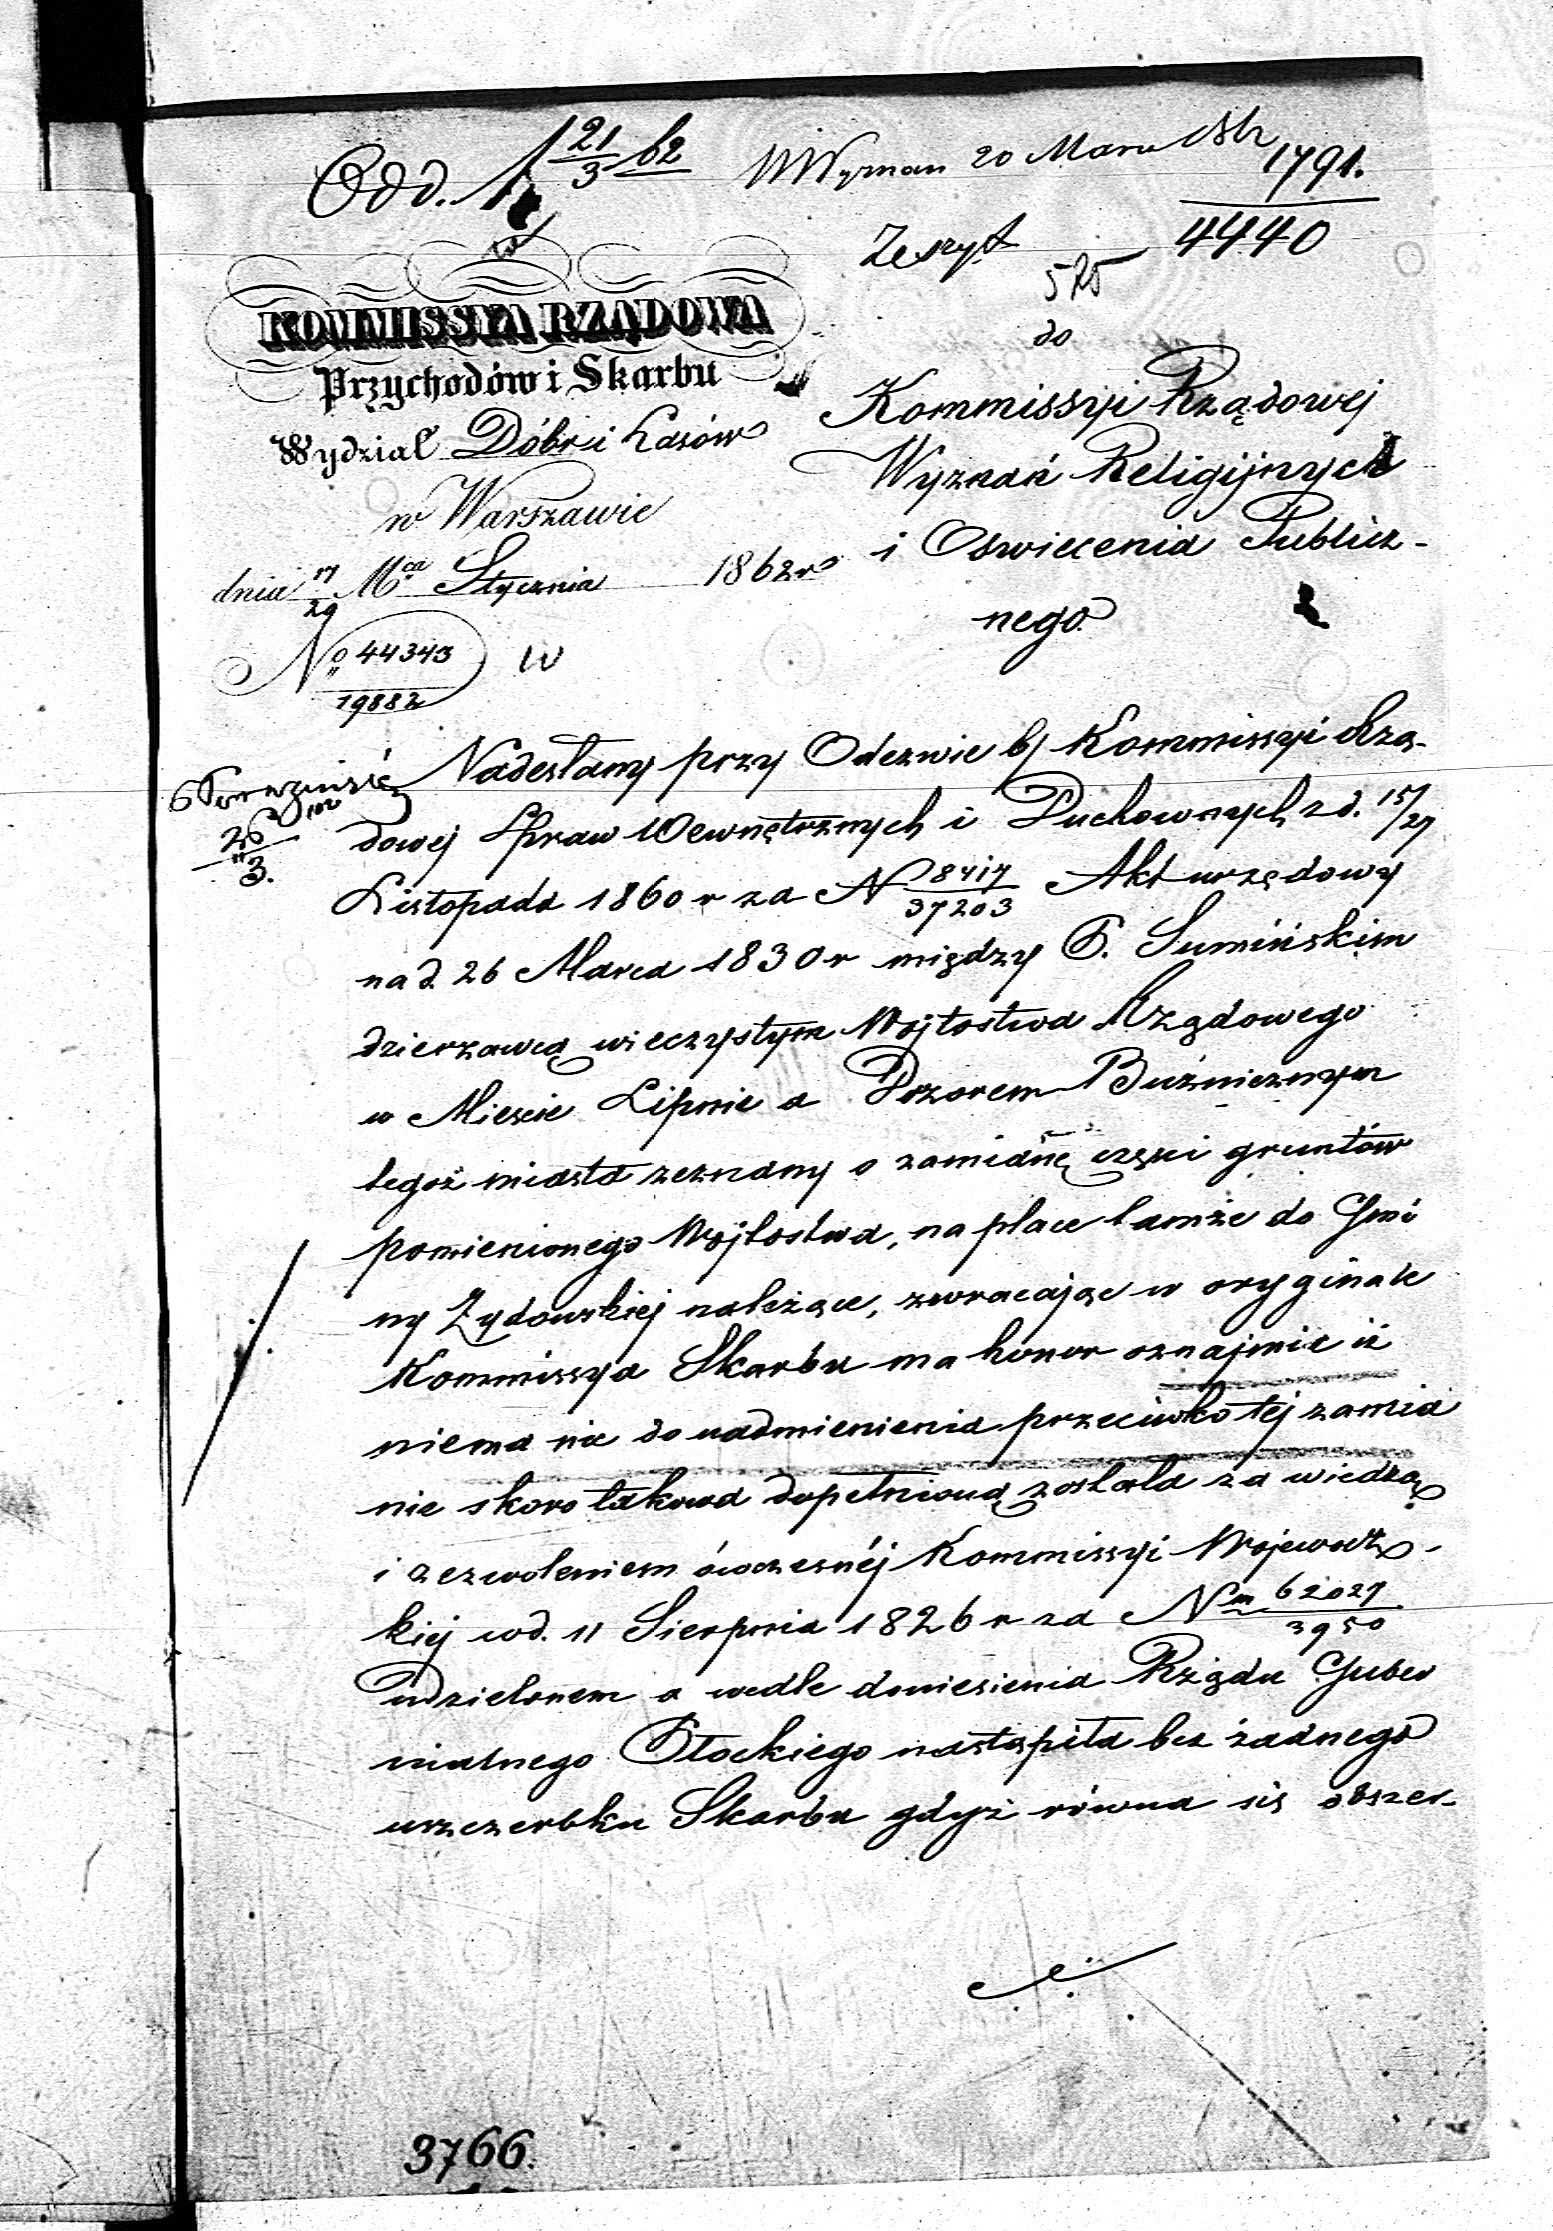 Odd. 1 21/3 62
WWyznan 20 Marca
1791.
4440
Zeszyt
525
do
KOMMISSYA RZĄDOWA
Przychodów i Skarbu
Wydział Dóbr i Lasów
w Warszawie
dnia 17/29 Mca Stycznia 1862 r
No 44343/19882 W
Kommissyi Rządowej
Wyznań Religijnych
i Oswiecenia Publicz-
nego
Nadesłany przy Odezwie b/ Kommissyi Rzą-
dowej Spraw Wewnętrznych i Duchownych z d. 15/27
Listopada 1860 r za N 8417/37203 Akt urzędowy
na d. 26 Marca 1830 r między P. Sumińskim
dzierzawcą wieczystym Wójtostwa Rządowego
w Mieście Lipnie a Dozorem Bużnicznym
tegoż miasta zeznany o zamianę części gruntów
pomienionego Wójtostwa, na place tamże do Gmi
ny Żydowskiej należące, zwracając w oryginale
Kommissya Skarbu ma honor oznajmić iż
niema nic do nadmienienia przeciwko tej zamia
nie skoro takowa dopełnioną została za wiedzą
i zezwoleniem ówczesnéj Kommissyi Wojewódz-
kiej w d. 11 Sierpnia 1826 r za Nm 62027/3950
udzielonem a wedle doniesienia Rządu Guber
nialnego Płockiego nastąpiła bez żadnego
uszczerbku Skarbu gdyż równa się obszer-
3766.